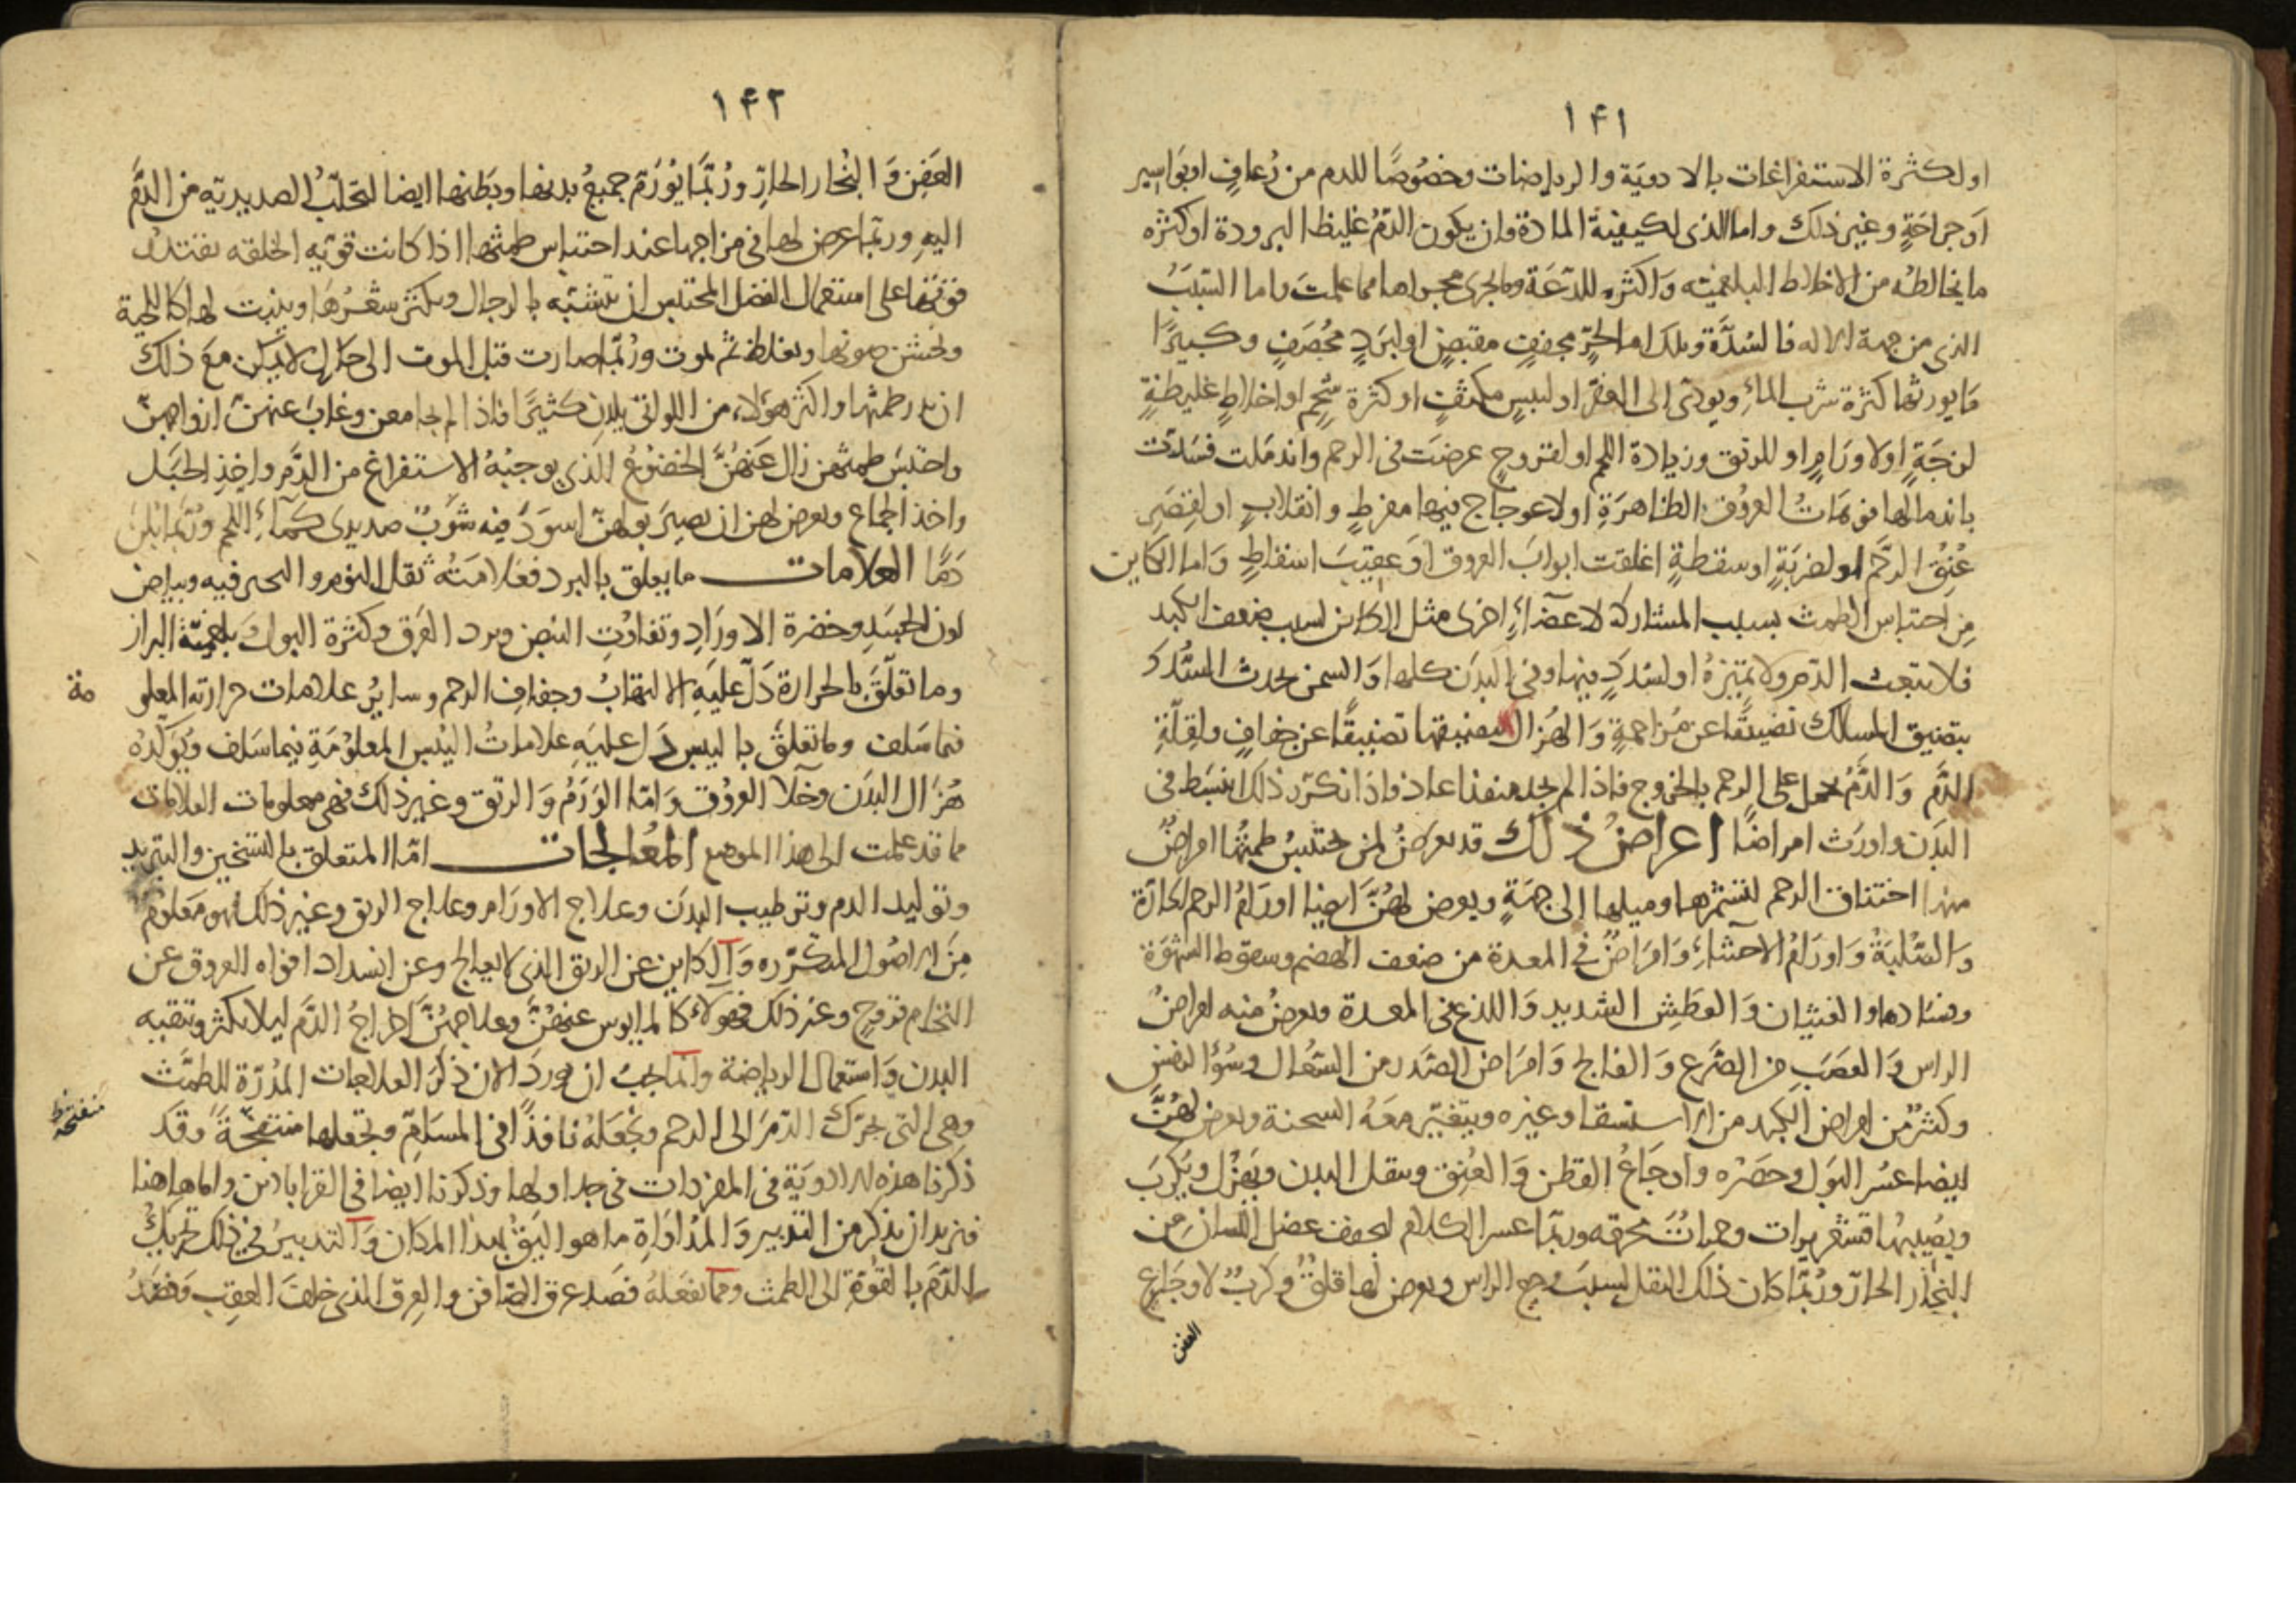 ١٤١
او لكثرة الاستفراغات بالادوية والرياضات وخصوصًا للدم من رُعافٍ او بواسير
اَو جراحَةٍ وغير ذلك واما الذى لكيفية المادة فان يكون الدّمُ غليظا لبرودة او كثره
ما يخالطه من الاخلاط البلغميّه وَاكثره للدّعَة وما يجرى مجراها مما علمتَ واما السّبَبُ
الذى من جهة الاله فالسُدَّة وتلك اما لحرٍّ مجففٍ مقبضٍ او لبَردٍ محُصَفٍ وكثيرًا
مَا يورثها كثرة شرب المآءِ ويودّى الى العقر او ليبسٍ مكثفٍ او كثرة شحمٍ او اخلاطٍ غليظةٍ
لزجَةٍ اولاورَامٍ او للرتق وزيادة اللحم او لقروحٍ عرضَت فى الرحم واندمَلت فسَدّت
باندمالها فوهَاتُ العروُق الظاهرَةِ اولاعوجاج فيها مفرطٍ وانقلابٍ او لقِصَرِ
عُنِقْ الرّحم او لضربَةٍ او سقطةٍ اغلقت ابوابَ العروق اوَ عقيبَ اسقاطٍ وَاما الكاين
مِن احتباس الطمث بسبب المشاركة لاعضآءٍ اخرى مثل الكاين لسبب ضعف الكبد
فلا تبعث الدّم ولا تميّزهُ او لسُددٍ فيها وفى البَدَن كلها وَالسمن يحدث السُّدَدَ
بتضيق المسالك تضييقًا عن مُزاحمةٍ وَالهُزال بتضييقها تضييقًا عن جفافٍ ولقِلّةِ
الدَّم وَالدَّمُ يحمل على الرحم بالخروج فاذا لم يجد منفذا عاد فاذا تكرّر ذلك انبسَط فى
البدَن واورَث امراضًا اعراضُ ذلك قد يعرضُ لمن يحتبسُ طمثُها امراضٌ
منها اختناق الرحم لتشمّرها وميلها الى جهَةٍ ويعرض لهُنَّ ايضا اورَامُ الرحم الحارّة
وَالصّلبَةُ وَاورَامُ الاحشآءِ وَامرَاضٌ فى المعدة من ضعف الهضم وسقوط الشهوَة
وفسَادها والغثيان وَالعطَشِ الشديد وَاللذع فى المعدة ويعرضُ منه امراضُ
الراس وَالعصَبِ من الصَّرع وَالفالج وَامرَاض الصّدر من السّعُال وسُوُء النفس
وكثيرٌ من امراض الكبد من الاستسقا وغيره ويتغيّر معَهُ السحنة ويعرض لهُنَّ
ايضا عسُر البَول وحصَرُه واوجَاعُ القطن وَالعُنِقْ ويثقل البدن ويَهزُل ويَكربَ
ويُصيبهُا قشعريرات وحمياتُ محرقه وربّما عسر الكلام لجفف عضل اللّسان مِن
البخار الحارّ ورُبّما كان ذلك الثقل لسبَب وجع الراس ويعرض لها قلقٌ وكربٌ لاوجَاع
العفن
١٤٢
العَفِن وَالبُخار الحارِّ ورُبّمَا يوُرَم جميعُ بدنها وبَطنها ايضا لتحَلّبُ الصديديّه من الدّم
اليهِ وربّما عرض لها فى مزاجها عند احتباس طمثها اذا كانت قويّه الخلقه تقتدرُ
قوّتها على استعمال الفضل المحتبس ان تتشبّه بالرجال ويكثر شعْرُهَا وينبت لها كاللّحية
ويخشن صوتها ويغلظ ثم تموت ورُبّما صارت قبل الموت الى حَالٍ لا يمكن معَ ذلك
ان يدر طمثها واكثر هؤلاء من اللواتى يلدن كثيرًا فاذا لم يجامعن وغابَ عنهنّ ازواجهنّ
واحتبسَ طمثهن زال عَنهُنَّ الخضوعُ الّذى يوجبُهُ الاستفراغ من الدَّم واخِذِ الحبَل
واخذ الجماع ويعرض لهن ان يصيرَ بولهنّ اسوَدَ فيه شَوبٌ صديدى كمآءِ اللّحم ورُبّما بُلنَ
دَمًا العلامات ما يعلق بالبرد فعَلامَتُه ثقل النوم والتحير فيه وبياض
لون الجسَدِ وخضرة الاورَادِ وتفاوُت النبض وبرد العَرق وكثرة البول وبلغميّة البراز
وما تعلّقَ بالحرارة دَلّ عَليَهِ الالتهابُ وجفاف الرحم وسايرُ علامات حرارته المعلو
مة
فيما سَلف وما تعلّقَ باليبسِ دَل عليَهِ علاماتُ اليُبْس المعلوُمَةِ فيما سَلف ويُوَكّدُه
هُزال البدَن وخلآ العروُق وَامّا الورَمُ وَالرتق وغير ذلك فهى معلومات العلامات
مما قد علمت الى هذا الموضع المعُالجات امّا المتعلق بالتسخين والتبريد
وتوليد الدم وترطيب البدَن وعلاج الاورَام وعلاج الرتق وغير ذلك فهو مَعلوُم
مِنَ الاصُول المتكرّره وَالكاين عن الرتق الذى لا يعالج وعن انسداد افواه العروق عن
التحام قروحٍ وغير ذلك فهولآء كالمايوس عنهُنَّ وعلاجهُنَّ اخراجُ الدَّم ليلا يكثر وتنقيه
البدن وَاستعمال الرياضة وانّما يجبُ ان نوردَ الان ذكرَ العلاجات المُدرّة للطمَّث
وهى التى تحرّك الدّمَ الى الرحم وتجعَلهُ نافذًا فى المسَامّ وتجعلها منتفجّةً وَقد
منفتحة ظ
ذكرنا هذه الادوَيَة فى المفردات فى جداولها وذكرنا ايضا فى القراباذين واما هاهنا
فنريد ان نذكر من التدبير وَالمُداوَاةِ ما هو اليَقُ بهذا المكان وَالتدبيرُ فى ذلك تحريكُ
الدّمَ بالقوُّة الى الطمث ومما تفعَلهُ فصَد عرق الصّافن والعِرق الذى خلفَ العقِب وَفصَدُ